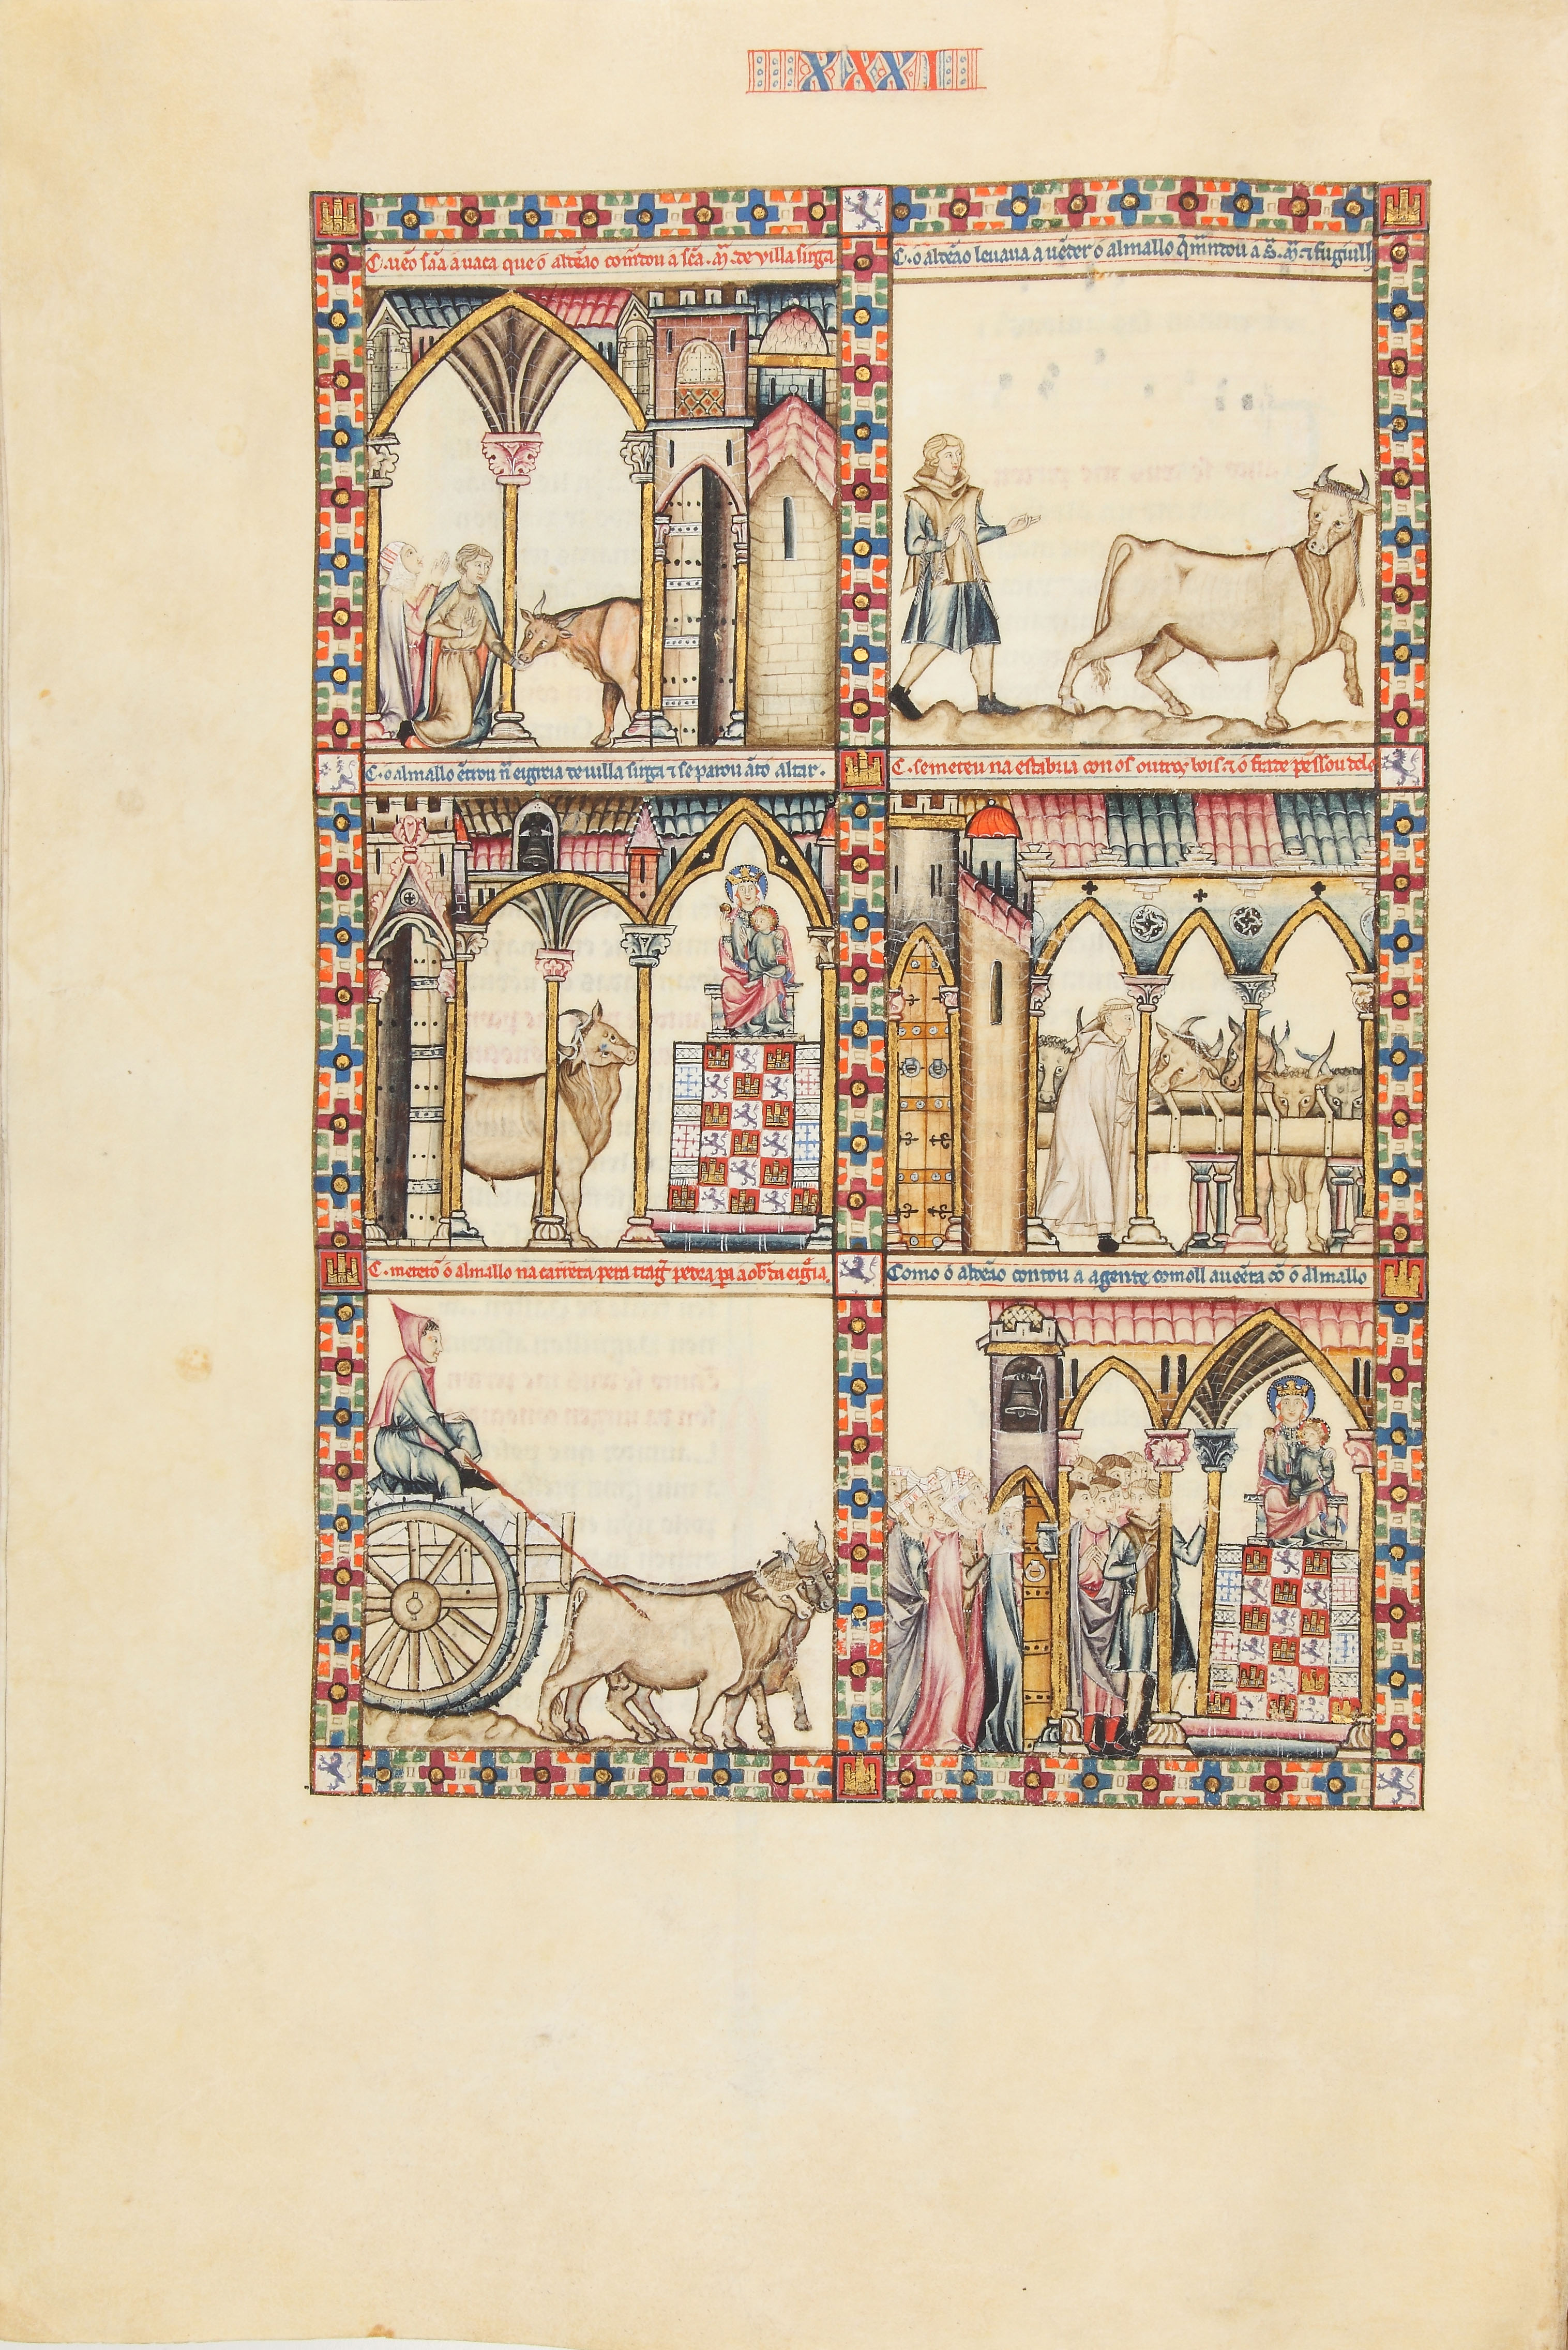 XXXI
C. uẽo sãa a uaca que o aldeão comẽdou a scã. Mª. de uilla sirga
C. o aldeão leuaua a uẽder o almallo q̃ mãdou a S. Mª. ⁊ fugiull
C. o almallo ẽtrou nã eigreia de uilla sirga ⁊ se parou ãto altar.
C. se meteu na estabria con os outros bois. ⁊ o frade pẽssou del
C. meterõ o almallo na carreta pera trag̃ pedra pª a ob̃ da eigr̃ia
Como o aldeão contou a a gente comoll auẽera cõ o Almallo